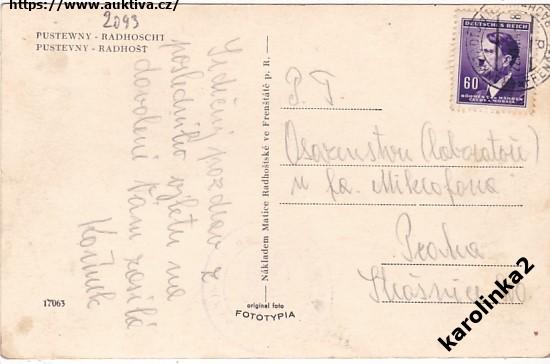 https://www.auktiva.cz/
2093
PUSTEWNY - RADHOSCHT
PUSTEVNY - RADHOŠŤ
Srdečný pozdrav z
posledního výletu na
dovolené Vám zasílá
17063
Nákladem Matice Radhošťské ve Frenštátě p. R.
original foto
FOTOTYPIA
DEUTSCHES REICH
60
BÖHMEN U. MÄHREN
ČECHY A MORAVA
P. T.
Osazenstvu (laboratoři)
u fa. Mikrofona
Praha
Strašnice
karolinka2